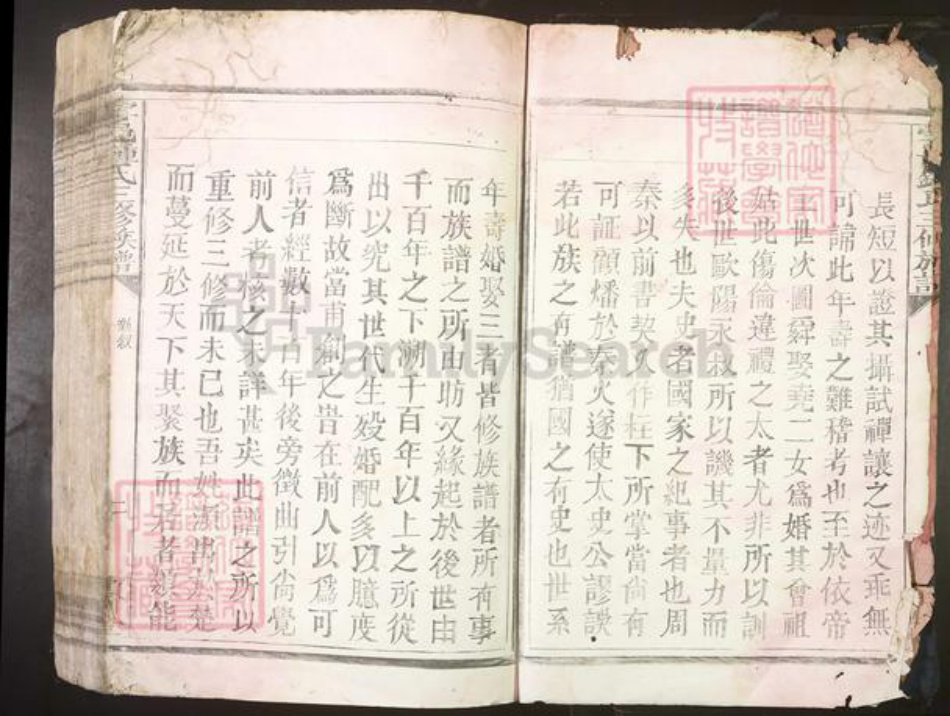 長短以證其攝試禪讓之迹又乖無
可論此年壽之難稽考也至於依帝
王世次圖舜娶堯二女爲婚其會祖
姑此傷倫違禮之太者尤非所以訓
後世歐陽永叔所以譏其不量力而
多失也夫史者國家之紀事者也周
秦以前書契久作柱下所掌當尚有
可証顧燔於秦火遂使太史公謬誤
若此族之有譜猶國之有史也世系
年壽婚娶三者皆修族譜者所有事
而族譜之所由助又緣起於後世由
千百年之下溯千百年以上之所從
出以究其世代生殁婚配多以臆度
爲斷故當甫創之昔在前人以爲可
信者經數十百年後旁徵曲引尚覺
前人者核之未詳甚矣此譜之所以
重修三修而未已也吾姓源出於楚
而蔓延於天下其聚族而居者類能
氏三修族譜
FamilySearch